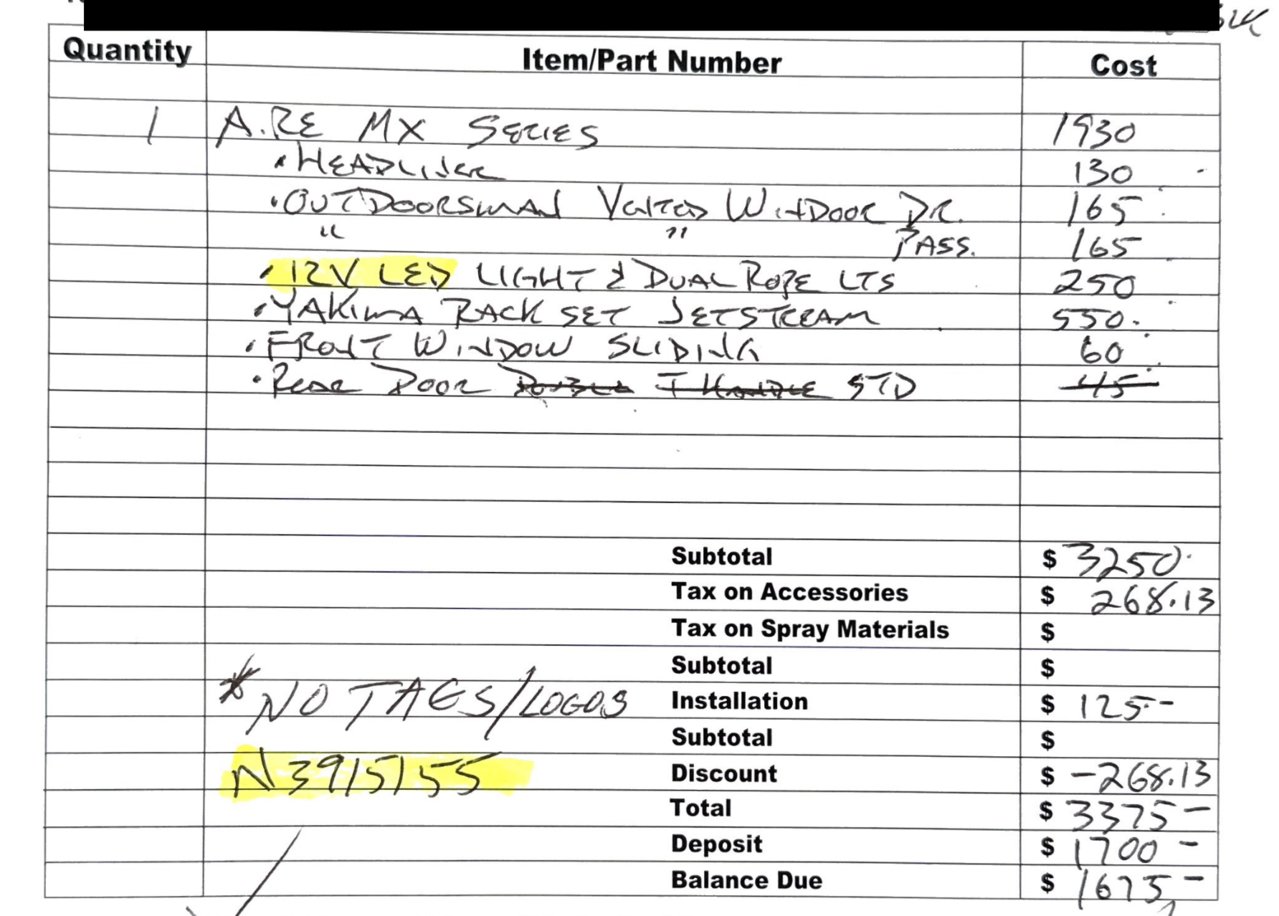 Quantity Item/Part Number Cost
1 A.RE MX SERIES 1930
• HEADLINER 130
• OUTDOORSMAN VENTED WINDOOR DR. 165
" " PASS. 165
• 12V LED LIGHT & DUAL ROPE LTS 250
• YAKIMA RACK SET JETSTREAM 550.
• FRONT WINDOW SLIDING 60
• REAR DOOR DOUBLE T HANDLE STD 45
Subtotal $ 3250.
Tax on Accessories $ 268.13
Tax on Spray Materials $
Subtotal $
* NO TAGS/LOGOS Installation $ 125.-
Subtotal $
N3915155 Discount $ -268.13
Total $ 3375-
Deposit $ 1700-
Balance Due $ 1675-